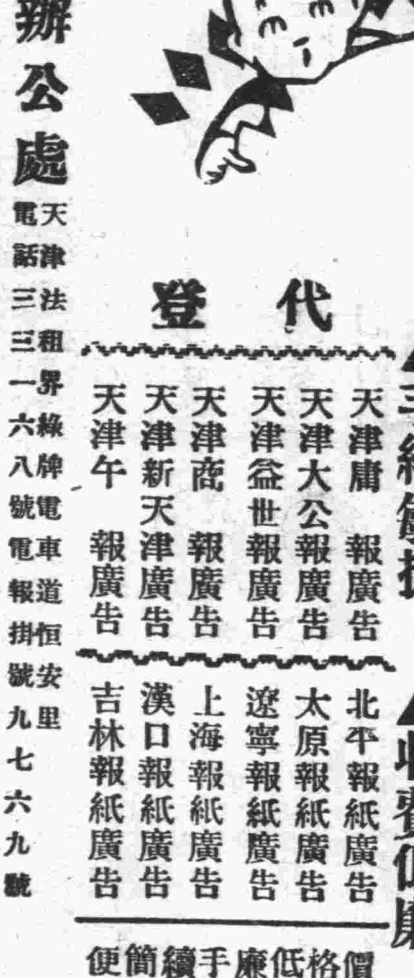 代登
天津庸報廣告
天津大公報廣告
天津益世報廣告
天津商報廣告
天津新天津廣告
天津午報廣告
北平報紙廣告
太原報紙廣告
遼寧報紙廣告
上海報紙廣告
漢口報紙廣告
吉林報紙廣告
價格低廉手續簡便
辦公處
天津法租界綠牌電車道恒安里
電話三三一六八號電報掛號九七六九號